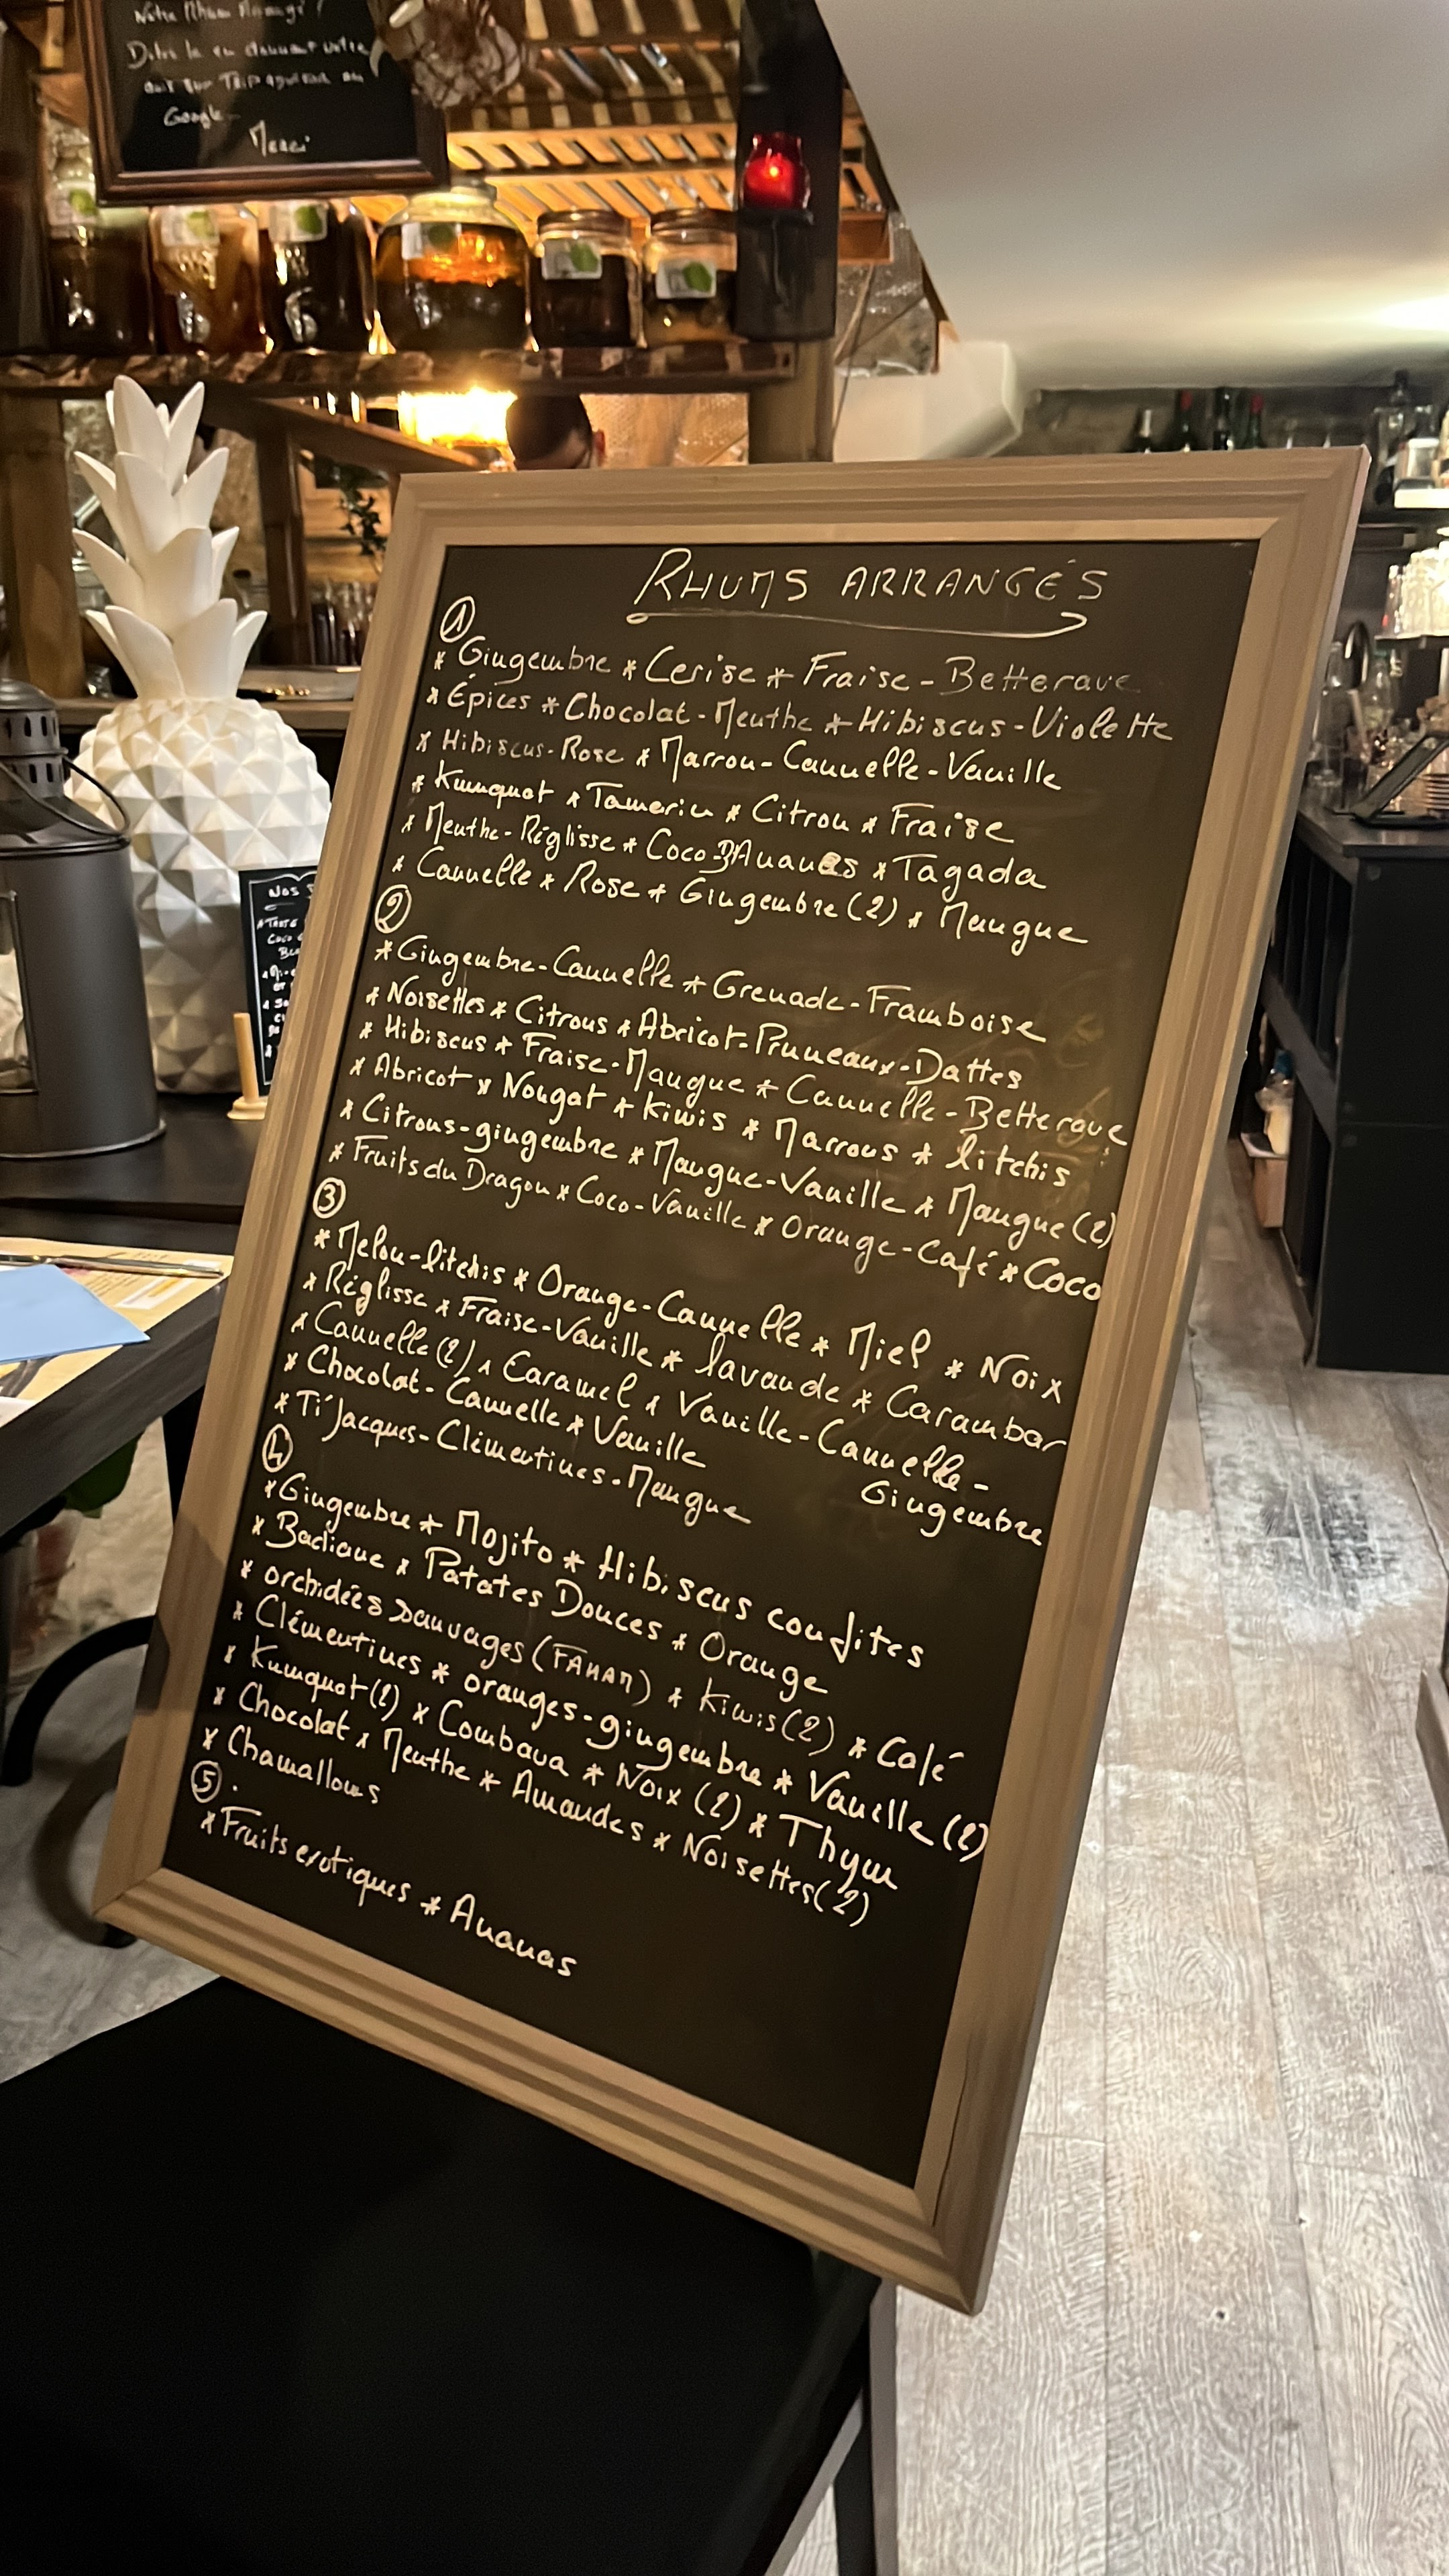 Notre Rhum Arrangé !
en donnant votre
avis sur
Google
Merci
RHUMS ARRANGÉS
①
* Gingembre * Cerise * Fraise - Betterave
* Épices * Chocolat - Menthe * Hibiscus - Violette
* Hibiscus - Rose * Marron - Cannelle - Vanille
* Kumquat * Tamarin * Citron * Fraise
* Menthe - Réglisse * Coco - Ananas * Tagada
* Cannelle * Rose * Gingembre (2) * Mangue
②
* Gingembre - Cannelle * Grenade - Framboise
* Noisettes * Citrons * Abricot - Pruneaux - Dattes
* Hibiscus * Fraise - Mangue * Cannelle - Betterave
* Abricot * Nougat * Kiwis * Marrons * litchis
* Citrons - gingembre * Mangue - Vanille * Mangue (2)
* Fruits du Dragon * Coco - Vanille * Orange - Café * Coco
③
* Melon - litchis * Orange - Cannelle * Miel * Noix
* Réglisse * Fraise - Vanille * lavande * Carambar
* Cannelle (2) * Caramel * Vanille - Cannelle -
Gingembre
* Chocolat - Cannelle * Vanille
* Ti'Jacques - Clémentines - Mangue
④
* Gingembre * Mojito * Hibiscus confites
* Badiane * Patates Douces * Orange
* orchidées sauvages (FAHAM) * Kiwis (2) * Café
* Clémentines * oranges - gingembre * Vanille (2)
* Kumquat (2) * Combava * Noix (2) * Thym
* Chocolat * Menthe * Amandes * Noisettes (2)
* Chamallows
⑤
* Fruits exotiques * Ananas
NOS